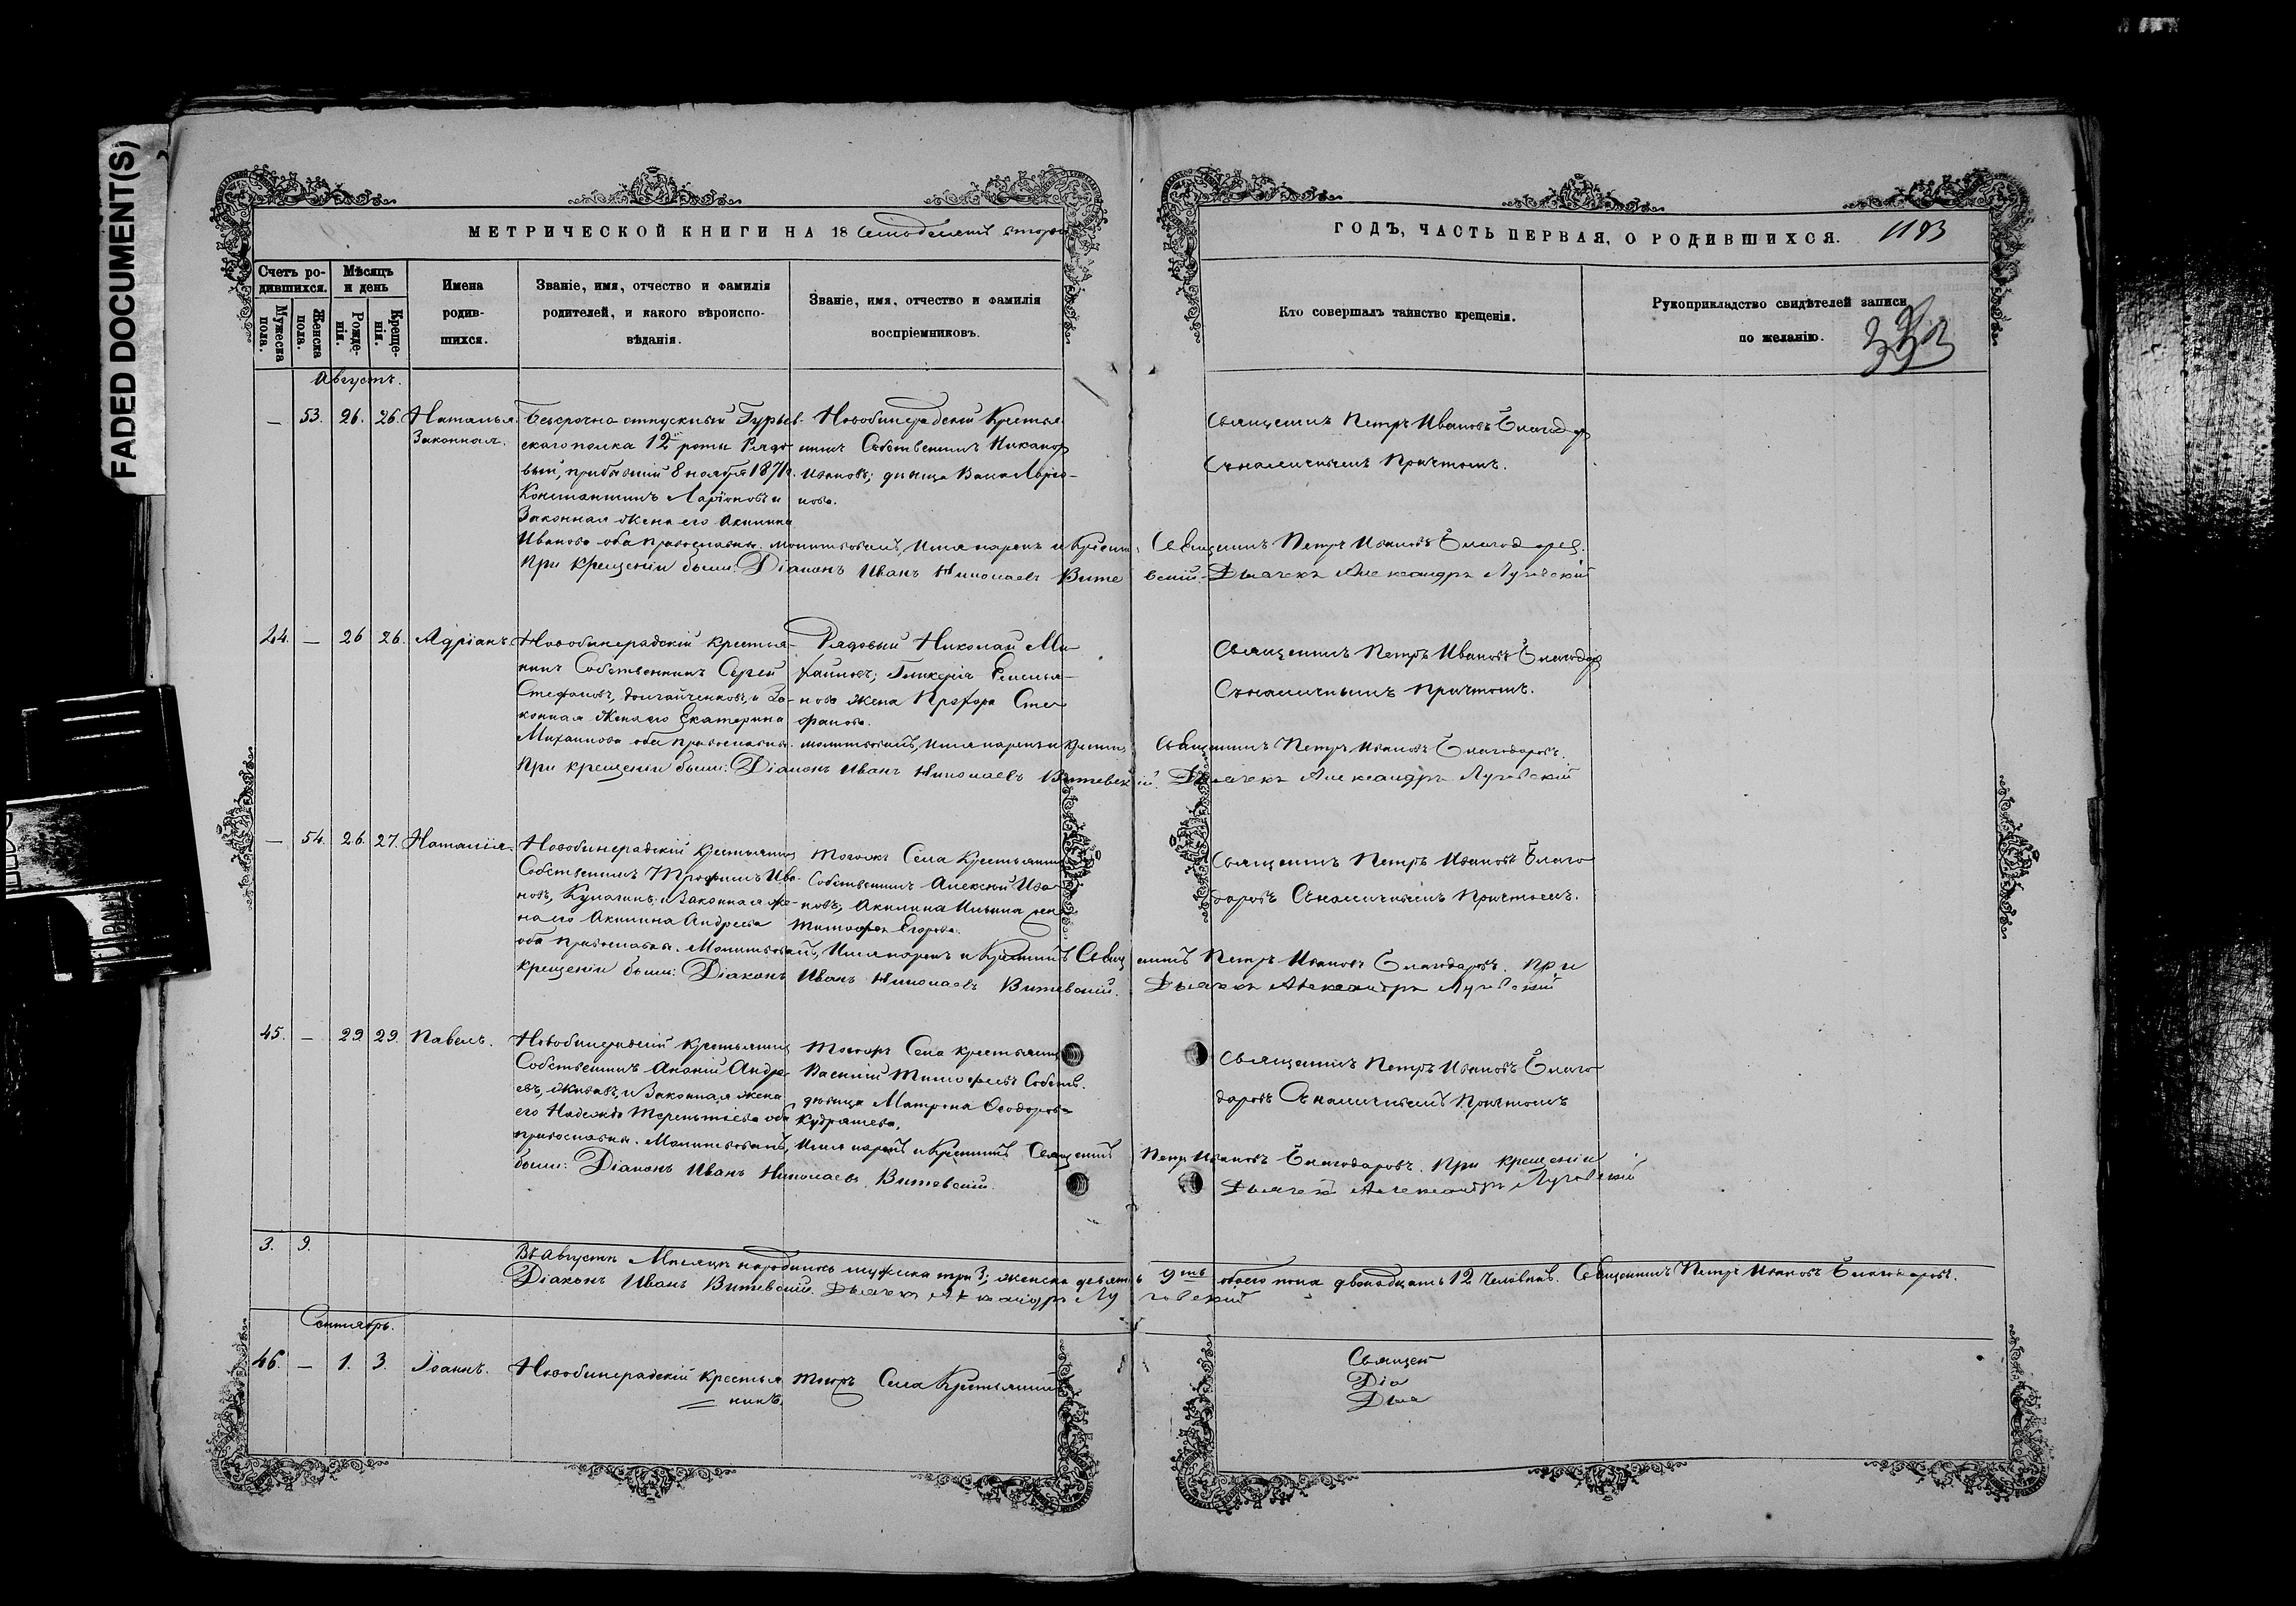 FADED DOCUMENT(S)
МЕТРИЧЕСКОЙ КНИГИ НА 18 семьдесятъ второй
ГОДЪ, ЧАСТЬ ПЕРВАЯ, О РОДИВШИХСЯ. 1183
Счетъ ро-
дившихся.
Мужеска
пола.
Женска
пола.
Мѣсяцъ
и день
Рожде-
нія.
Креще-
нія.
Имена
родив-
шихся.
Званіе, имя, отчество и фамилія
родителей, и какого вѣроиспо-
вѣданія.
Званіе, имя, отчество и фамилія
воспріемниковъ.
Кто совершалъ таинство крещенія.
Рукоприкладство свидѣтелей записи
по желанію.
Августъ.
— 53. 26. 26. Наталья
Законная.
Безсрочно отпускный Гурьев-
скаго полка 12й роты Рядо-
вый, прибывшій 8 ноября 1871г.
Константинъ Ларіоновъ и
Законная жена его Акилина
Новобинерадскій Крестья
нинъ Собственникъ Никанор
Ивановъ; дѣвица Ларіо-
нова.
Священникъ Петръ Ивановъ Благодар
Съ наличнымъ Причтомъ.
Иванова оба православны. молитвовалъ, Имя нарекъ и Крести Священникъ Петръ Ивановъ Благодаров.
При крещеніи были: Діаконъ Иванъ Николаевъ Вите вскій. Дьячекъ Александръ Луговскій
44. — 26 26. Адріанъ.
Новобинерадскій Крестья-
нинъ Собственникъ Сергей
Стефановъ, Долгайченковъ, и За-
конная жена его Екатерина
Рядовый Николай Ми-
хайловъ; Гликерія Емелья-
нова жена Прохора Сте
фанова.
Священникъ Петръ Ивановъ Благодар
Съ наличнымъ Причтомъ.
Михайлова оба православны. молитвовалъ, Имя нарекъ и Крестилъ Священникъ Петръ Ивановъ Благодаровъ.
При крещеніи были: Діаконъ Иванъ Николаевъ Витевскій. Дьячекъ Александръ Луговскій
— 54. 26. 27. Наталія.
Новобинерадскій Крестьянинъ
Собственникъ Трофимъ Ива-
новъ, Кулагинъ, и Законная же-
на его Акилина Андреева
Тогожъ Села Крестьянинъ
Собственникъ Алексѣй Ива-
новъ; Акилина Ильина жена
Тимофея Егорова.
Священникъ Петръ Ивановъ Благо
даровъ Съ наличнымъ Причтомъ.
оба православны. Молитвовалъ, Имя нарекъ и Крестилъ Священникъ Петръ Ивановъ Благодаровъ. При
крещеніи были: Діаконъ Иванъ Николаевъ Витевскій. Дьячекъ Александръ Луговскій
45. — 29. 29. Павелъ.
Новобинерадскій Крестьянинъ
Собственникъ Ананій Андре-
евъ, и Законная жена
его Надежда Терентіева оба
Тогожъ Села Крестьянинъ
Василій Тимофеевъ Собств.
дѣвица Матрона Феодорова
Кудряшева.
Священникъ Петръ Ивановъ Благо
даровъ Съ наличнымъ Причтомъ
православны. Молитвовалъ, Имя нарекъ и Крестилъ Священникъ Петръ Ивановъ Благодаровъ. При крещеніи
были: Діаконъ Иванъ Николаевъ Витевскій. Дьячекъ Александръ Луговскій
3. 9.
Въ Августѣ Мѣсяцѣ народилось мужска три 3; женска девять 9ть обоего пола двѣнадцать 12 человѣкъ. Священникъ Петръ Ивановъ Благодаровъ.
Діаконъ Иванъ Витевскій. Дьячекъ Александръ Луговскій
Сентябрь.
46. — 1. 3. Іоаннъ.
Новобинерадскій Крестья
нинъ,
Тогожъ Села Крестьянинъ
Священ
Діа
Дьяч